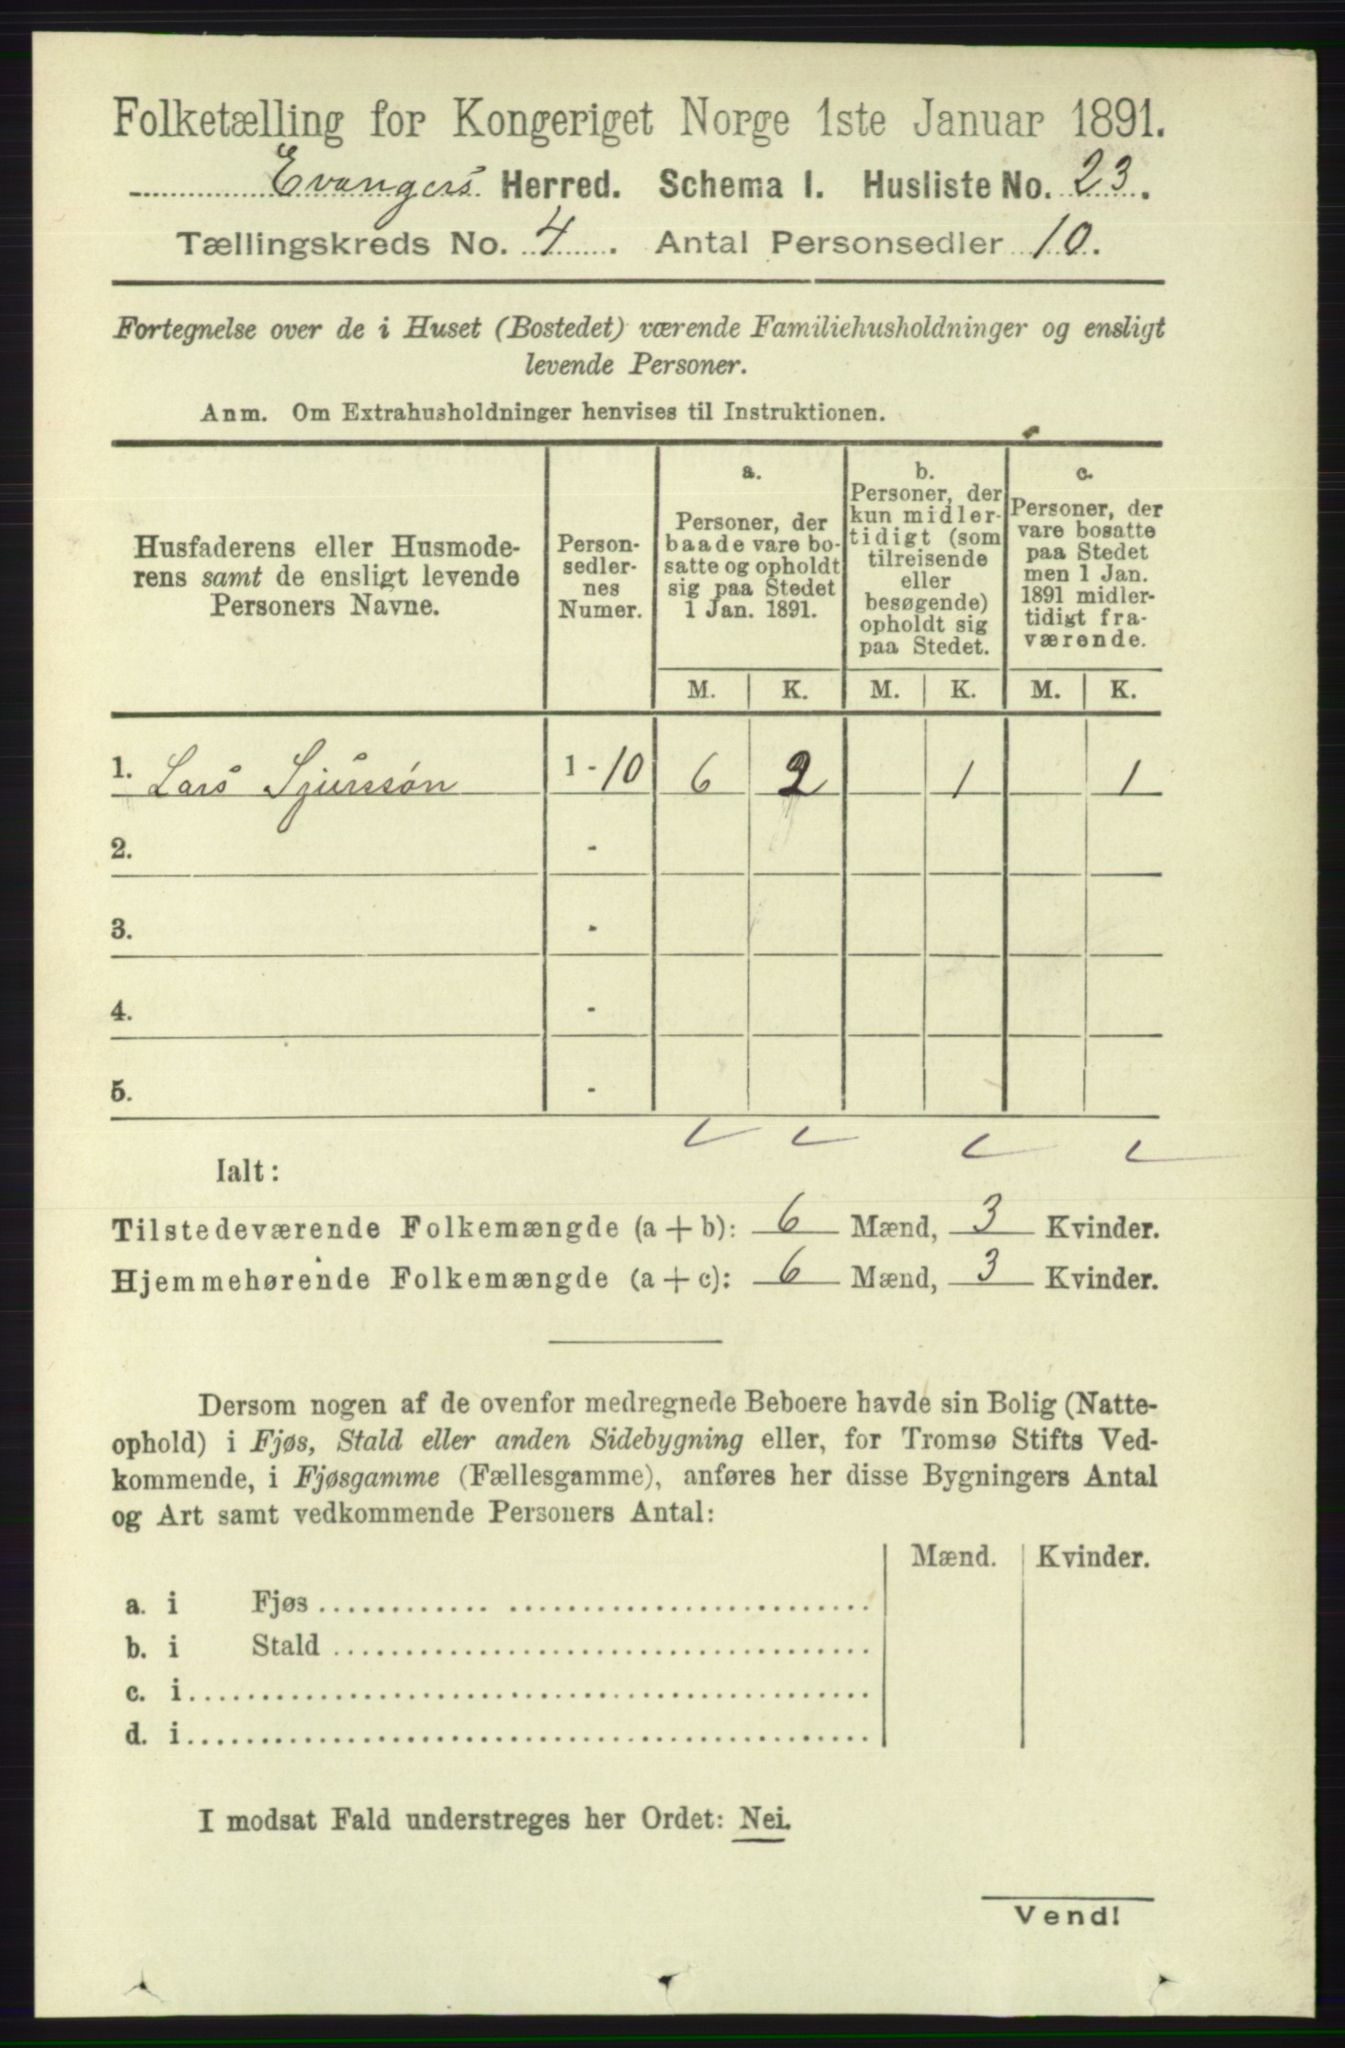 Folketælling for Kongeriget Norge 1ste Januar 1891.
Evangers Herred. Schema I. Husliste No. 23.
Tællingskreds No. 4. Antal Personsedler 10.
Fortegnelse over de i Huset (Bostedet) værende Familiehusholdninger og ensligt
levende Personer.
Anm. Om Extrahusholdninger henvises til Instruktionen.
Husfaderens eller Husmode-
rens samt de ensligt levende
Personers Navne.
Person-
sedler-
nes
Numer.
a.
Personer, der
baade vare bo-
satte og opholdt
sig paa Stedet
1 Jan. 1891.
b.
Personer, der
kun midler-
tidigt (som
tilreisende
eller
besøgende)
opholdt sig
paa Stedet.
c.
Personer, der
vare bosatte
paa Stedet
men 1 Jan.
1891 midler-
tidigt fra-
værende.
M. K. M. K. M. K.
1. Lars Sjurssøn 1-10 6 2 1 1
2. -
3. -
4. -
5. -
Ialt:
Tilstedeværende Folkemængde (a + b): 6 Mænd, 3 Kvinder.
Hjemmehørende Folkemængde (a + c): 6 Mænd, 3 Kvinder.
Dersom nogen af de ovenfor medregnede Beboere havde sin Bolig (Natte-
ophold) i Fjøs, Stald eller anden Sidebygning eller, for Tromsø Stifts Ved-
kommende, i Fjøsgamme (Fællesgamme), anføres her disse Bygningers Antal
og Art samt vedkommende Personers Antal:
Mænd. Kvinder.
a. i Fjøs
b. i Stald
c. i
d. i
I modsat Fald understreges her Ordet: Nei.
Vend!